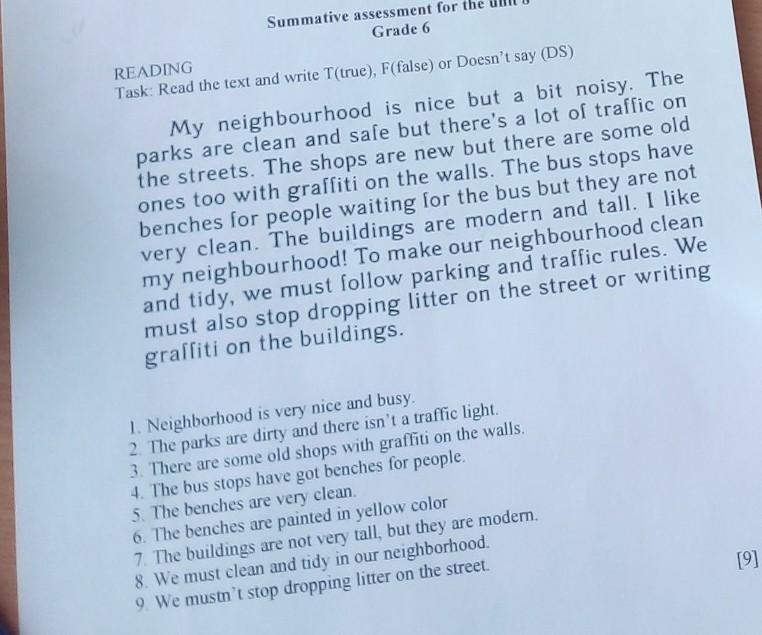 Summative assessment for the unit 8
Grade 6
READING
Task: Read the text and write T(true), F(false) or Doesn't say (DS)
My neighbourhood is nice but a bit noisy. The
parks are clean and safe but there's a lot of traffic on
the streets. The shops are new but there are some old
ones too with graffiti on the walls. The bus stops have
benches for people waiting for the bus but they are not
very clean. The buildings are modern and tall. I like
my neighbourhood! To make our neighbourhood clean
and tidy, we must follow parking and traffic rules. We
must also stop dropping litter on the street or writing
graffiti on the buildings.
1. Neighborhood is very nice and busy.
2. The parks are dirty and there isn't a traffic light.
3. There are some old shops with graffiti on the walls.
4. The bus stops have got benches for people.
5. The benches are very clean.
6. The benches are painted in yellow color
7. The buildings are not very tall, but they are modern.
8. We must clean and tidy in our neighborhood.
9. We mustn't stop dropping litter on the street.
[9]